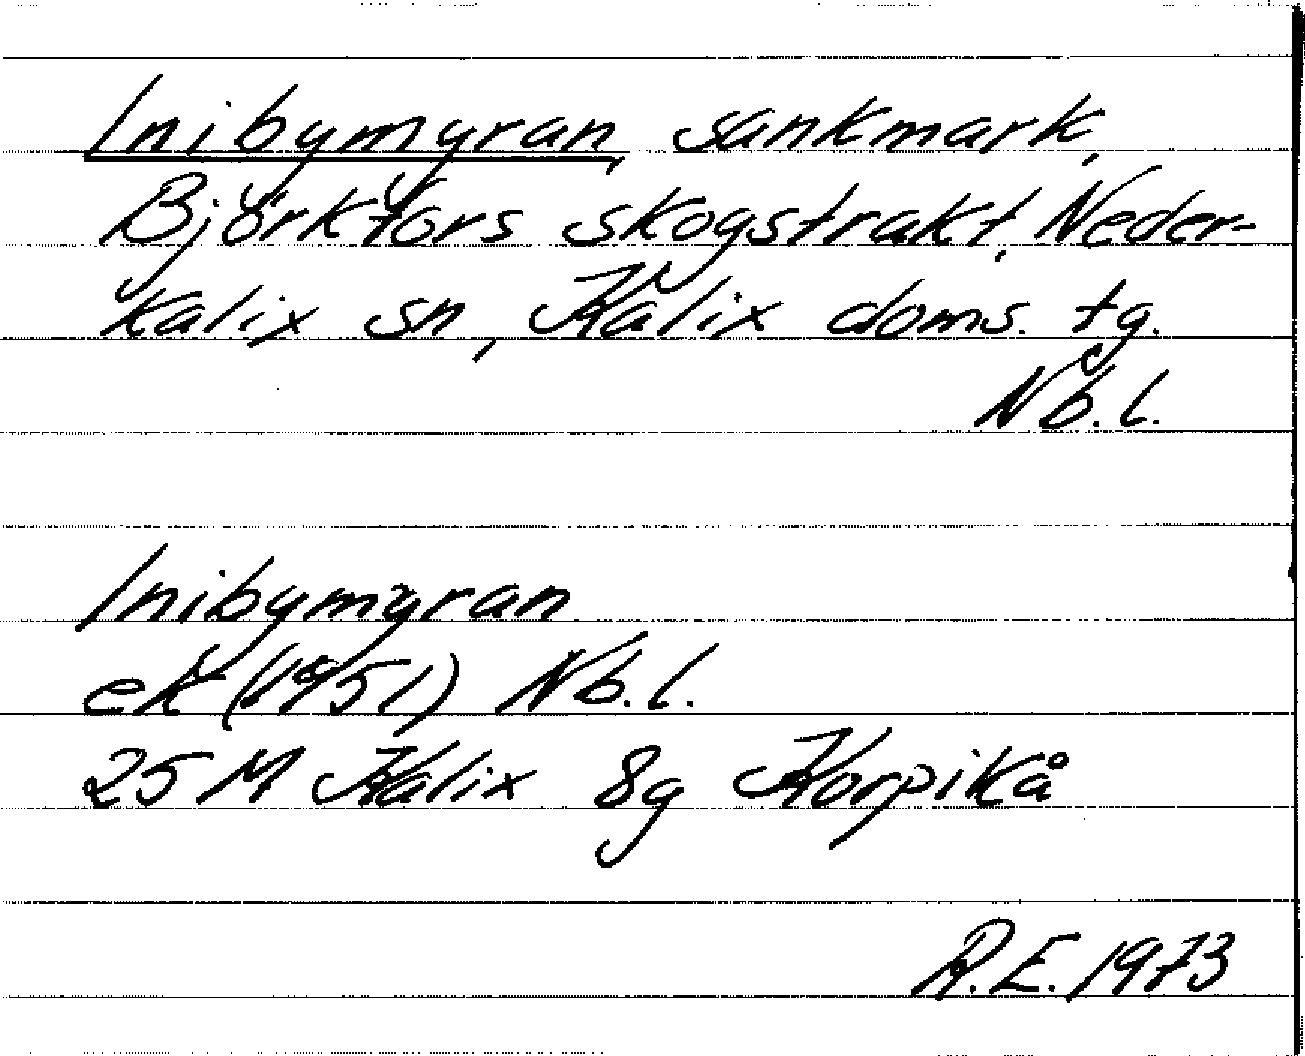 Inibymyran, sankmark,
Björkfors skogstrakt, Neder-
kalix sn, Kalix doms. tg.
Nb.l.
Inibymyran
ek (1951) Nb.l.
25 M Kalix 8g Korpikå
R.E. 1973